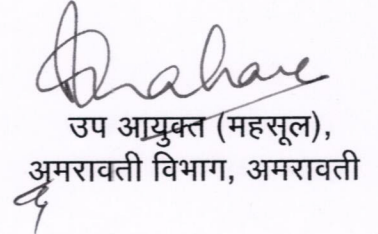 उप आयुक्त (महसूल),
अमरावती विभाग, अमरावती